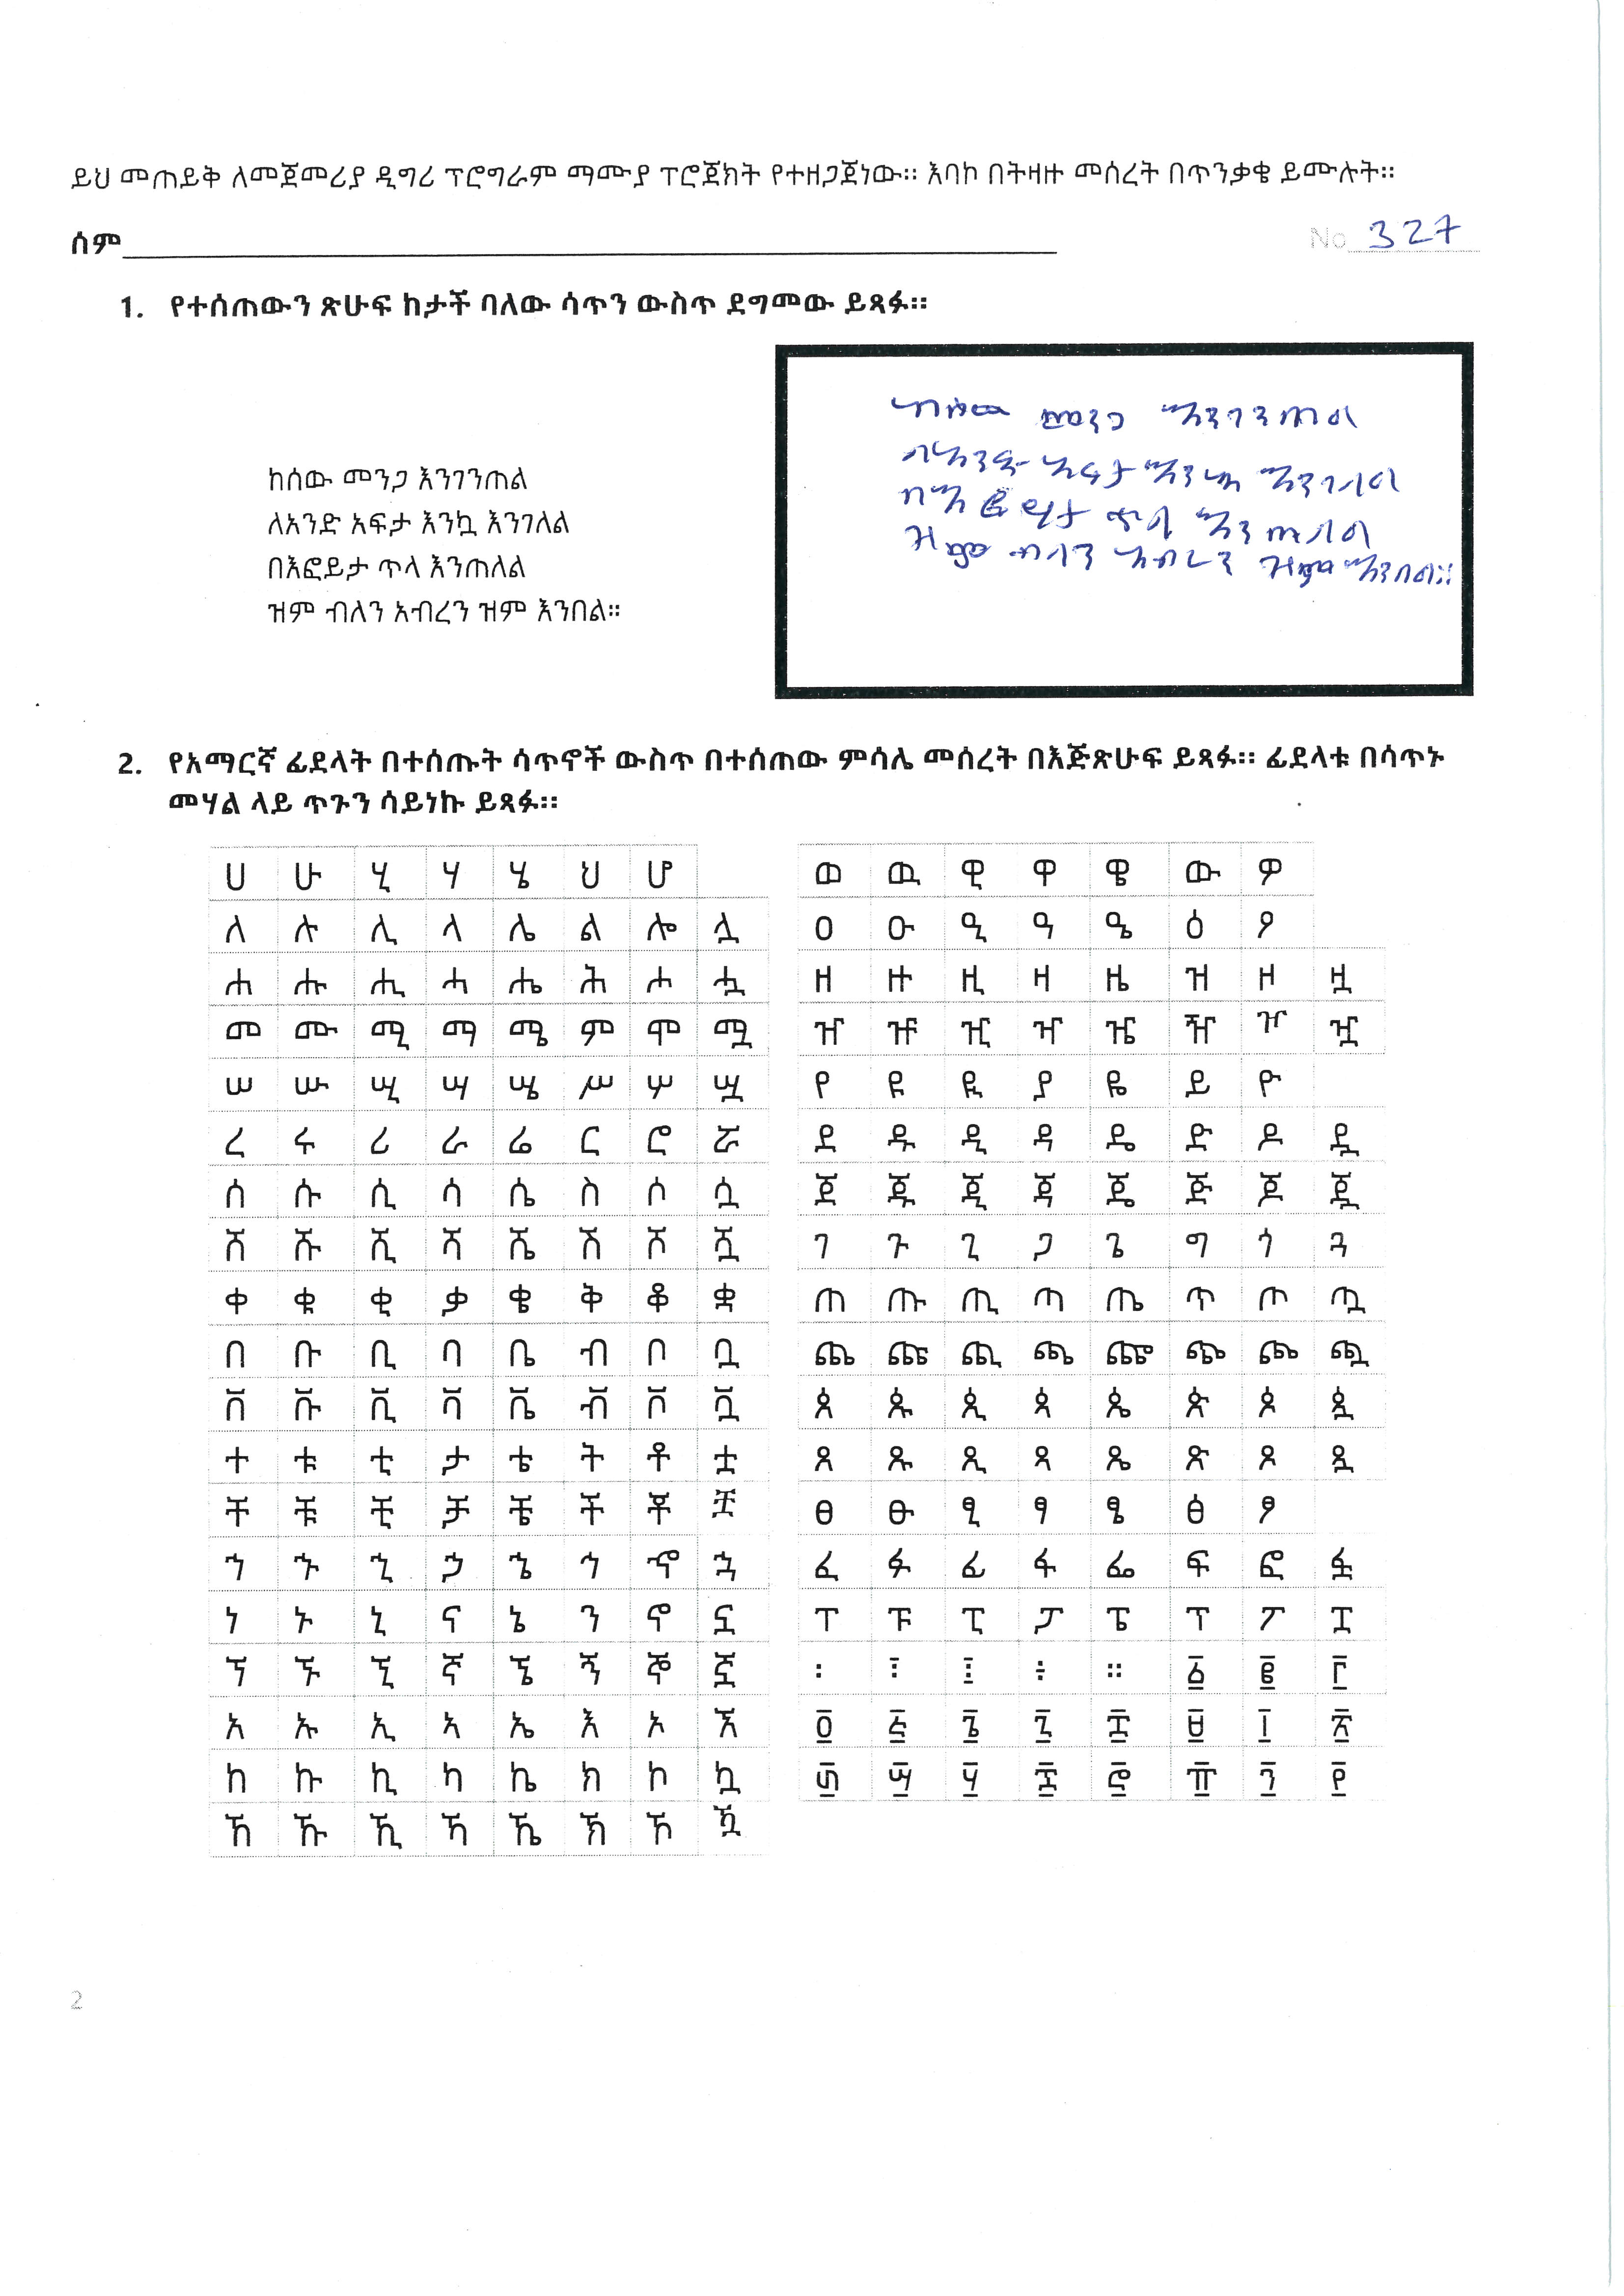 ይህ መጠይቅ ለመጀመሪያ ዲግሪ ፕሮግራም ማሙያ ፕሮጀክት የተዘጋጀነው። እባኮ በትዛዙ መሰረት በጥንቃቄ ይሙሉት።
ሰም
No 327
1. የተሰጠውን ጽሁፍ ከታች ባለው ሳጥን ውስጥ ደግመው ይጻፉ።
ከሰው መንጋ እንገንጠል
ለአንድ አፍታ እንኳ እንገለል
በእፎይታ ጥላ እንጠለል
ዝም ብለን አብረን ዝም እንበል።
ከሰው መንጋ እንገንጠል
ለአንድ አፍታ እንኳ እንገለል
በእፎይታ ጥላ እንጠለል
ዝም ብለን አብረን ዝም እንበል።
2. የአማርኛ ፊደላት በተሰጡት ሳጥኖች ውስጥ በተሰጠው ምሳሌ መሰረት በእጅጽሁፍ ይጻፉ። ፊደላቱ በሳጥኑ
መሃል ላይ ጥጉን ሳይነኩ ይጻፉ።
ሀ ሁ ሂ ሃ ሄ ህ ሆ
ለ ሉ ሊ ላ ሌ ል ሎ ሏ
ሐ ሑ ሒ ሓ ሔ ሕ ሖ ሗ
መ ሙ ሚ ማ ሜ ም ሞ ሟ
ሠ ሡ ሢ ሣ ሤ ሥ ሦ ሧ
ረ ሩ ሪ ራ ሬ ር ሮ ሯ
ሰ ሱ ሲ ሳ ሴ ስ ሶ ሷ
ሸ ሹ ሺ ሻ ሼ ሽ ሾ ሿ
ቀ ቁ ቂ ቃ ቄ ቅ ቆ ቋ
በ ቡ ቢ ባ ቤ ብ ቦ ቧ
ቨ ቩ ቪ ቫ ቬ ቭ ቮ ቯ
ተ ቱ ቲ ታ ቴ ት ቶ ቷ
ቸ ቹ ቺ ቻ ቼ ች ቾ ቿ
ኀ ኁ ኂ ኃ ኄ ኅ ኆ ኋ
ነ ኑ ኒ ና ኔ ን ኖ ኗ
ኘ ኙ ኚ ኛ ኜ ኝ ኞ ኟ
አ ኡ ኢ ኣ ኤ እ ኦ ኧ
ከ ኩ ኪ ካ ኬ ክ ኮ ኳ
ኸ ኹ ኺ ኻ ኼ ኽ ኾ ዃ
ወ ዉ ዊ ዋ ዌ ው ዎ
ዐ ዑ ዒ ዓ ዔ ዕ ዖ
ዘ ዙ ዚ ዛ ዜ ዝ ዞ ዟ
ዠ ዡ ዢ ዣ ዤ ዥ ዦ ዧ
የ ዩ ዪ ያ ዬ ይ ዮ
ደ ዱ ዲ ዳ ዴ ድ ዶ ዷ
ጀ ጁ ጂ ጃ ጄ ጅ ጆ ጇ
ገ ጉ ጊ ጋ ጌ ግ ጎ ጓ
ጠ ጡ ጢ ጣ ጤ ጥ ጦ ጧ
ጨ ጩ ጪ ጫ ጬ ጭ ጮ ጯ
ጰ ጱ ጲ ጳ ጴ ጵ ጶ ጷ
ጸ ጹ ጺ ጻ ጼ ጽ ጾ ጿ
ፀ ፁ ፂ ፃ ፄ ፅ ፆ
ፈ ፉ ፊ ፋ ፌ ፍ ፎ ፏ
ፐ ፑ ፒ ፓ ፔ ፕ ፖ ፗ
፡ ፣ ፤ ÷ ። ፩ ፪ ፫
፬ ፭ ፮ ፯ ፰ ፱ ፲ ፳
፴ ፵ ፶ ፷ ፸ ፹ ፺ ፻
2